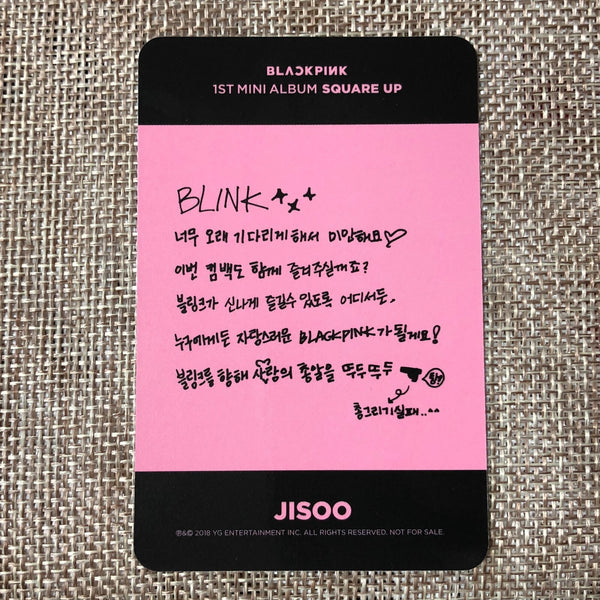 BLACKPINK
1ST MINI ALBUM SQUARE UP
BLINK
너무 오래 기다리게해서 미안해요♡
이번 컴백도 함께 즐겨주실꺼죠?
블링크가 신나게 즐길수 있도록 어디서든,
누구에게든 자랑스러운 BLACKPINK가 될게요!
블링크를 향해 사랑의 총알을 뚜두뚜두
총그리기실패..^^
JISOO
℗&© 2018 YG ENTERTAINMENT INC. ALL RIGHTS RESERVED. NOT FOR SALE.